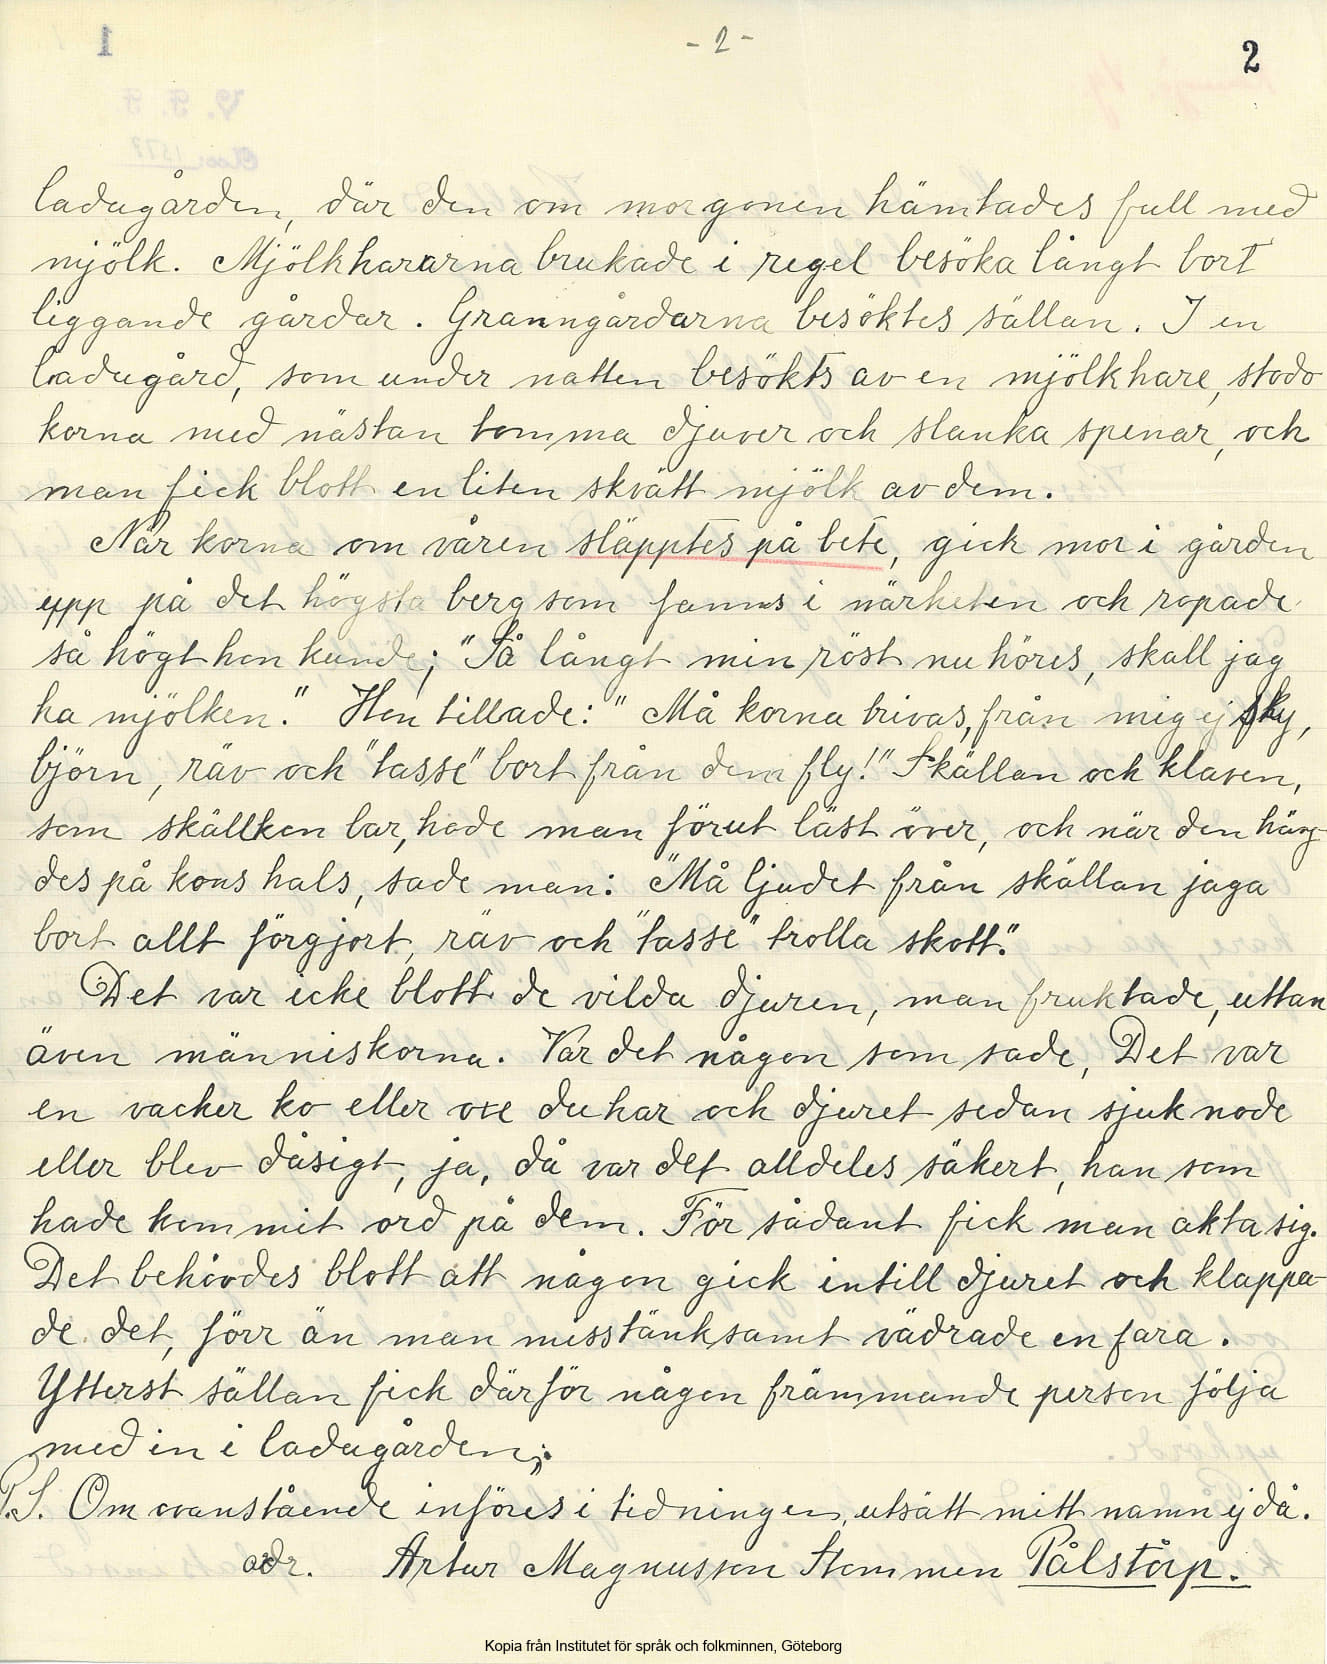 - 2 -
2
ladugården, där den om morgonen hämtades full med
mjölk. Mjölkhararna brukade i regel besöka långt bort
liggande gårdar. Granngårdarna besöktes sällan. I en
ladugård, som under natten besökts av en mjölkhare, stodo
korna med nästan tomma djuver och slanka spenar, och
man fick blott en liten skvätt mjölk av dem.
När korna om våren släpptes på bete, gick mor i gården
upp på det högsta berg som fanns i närheten och ropade
så högt hon kunde; "Så långt min röst nu höres, skall jag
ha mjölken." Hon tillade: "Må korna trivas, från mig ej sky,
björn, räv och "tasse" bort från dem fly!" Skällan och klaven,
som skällkon bar, hade man förut läst över, och när den häng-
des på kons hals, sade man: "Må ljudet från skällan jaga
bort allt förgjort, räv och "tasse" trolla skott."
Det var icke blott de vilda djuren, man fruktade, uttan
även människorna. Var det någon som sade, Det var
en vacker ko eller oxe du har och djuret sedan sjuknode
eller blev dåsigt, ja, då var det alldeles säkert, han som
hade kommit ord på dem. För sådant fick man akta sig.
Det behövdes blott att någon gick intill djuret och klappa-
de det, förr än man misstänksamt vädrade en fara.
Ytterst sällan fick därför någon främmande person följa
med in i ladugården;
P.S. Om ovanstående införes i tidningen, utsätt mitt namn ej då.
adr. Artur Magnusson Stommen Pålstorp.
Kopia från Institutet för språk och folkminnen, Göteborg